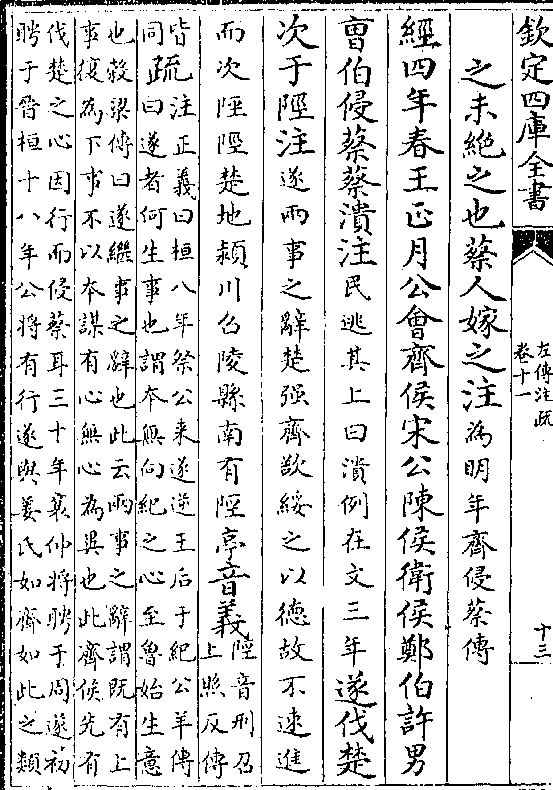 欽定四庫全書
左傳注疏
卷十一
十三
之未絕之也蔡人嫁之注為明年齊侵蔡傳
經四年春王正月公會齊侯宋公陳侯衛侯鄭伯許男
曹伯侵蔡蔡潰注民逃其上曰潰例在文三年遂伐楚
次于陘注遂兩事之辭楚强齊欲綏之以德故不速進
而次陘陘楚地潁川召陵縣南有陘亭音義陘音刑召
上照反傳
皆同疏注正義曰桓八年祭公來遂逆王后于紀公羊傳
曰遂者何生事也謂本無向紀之心至魯始生意
也穀梁傳曰遂繼事之辭也此云兩事之辭謂既有上
事復為下事不以本謀有心無心為異也此齊侯先有
伐楚之心因行而侵蔡耳三十年襄仲將聘于周遂初
聘于晉桓十八年公將有行遂與姜氏如齊如此之類